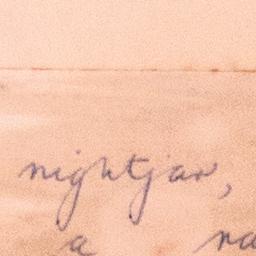 nightjar,
a